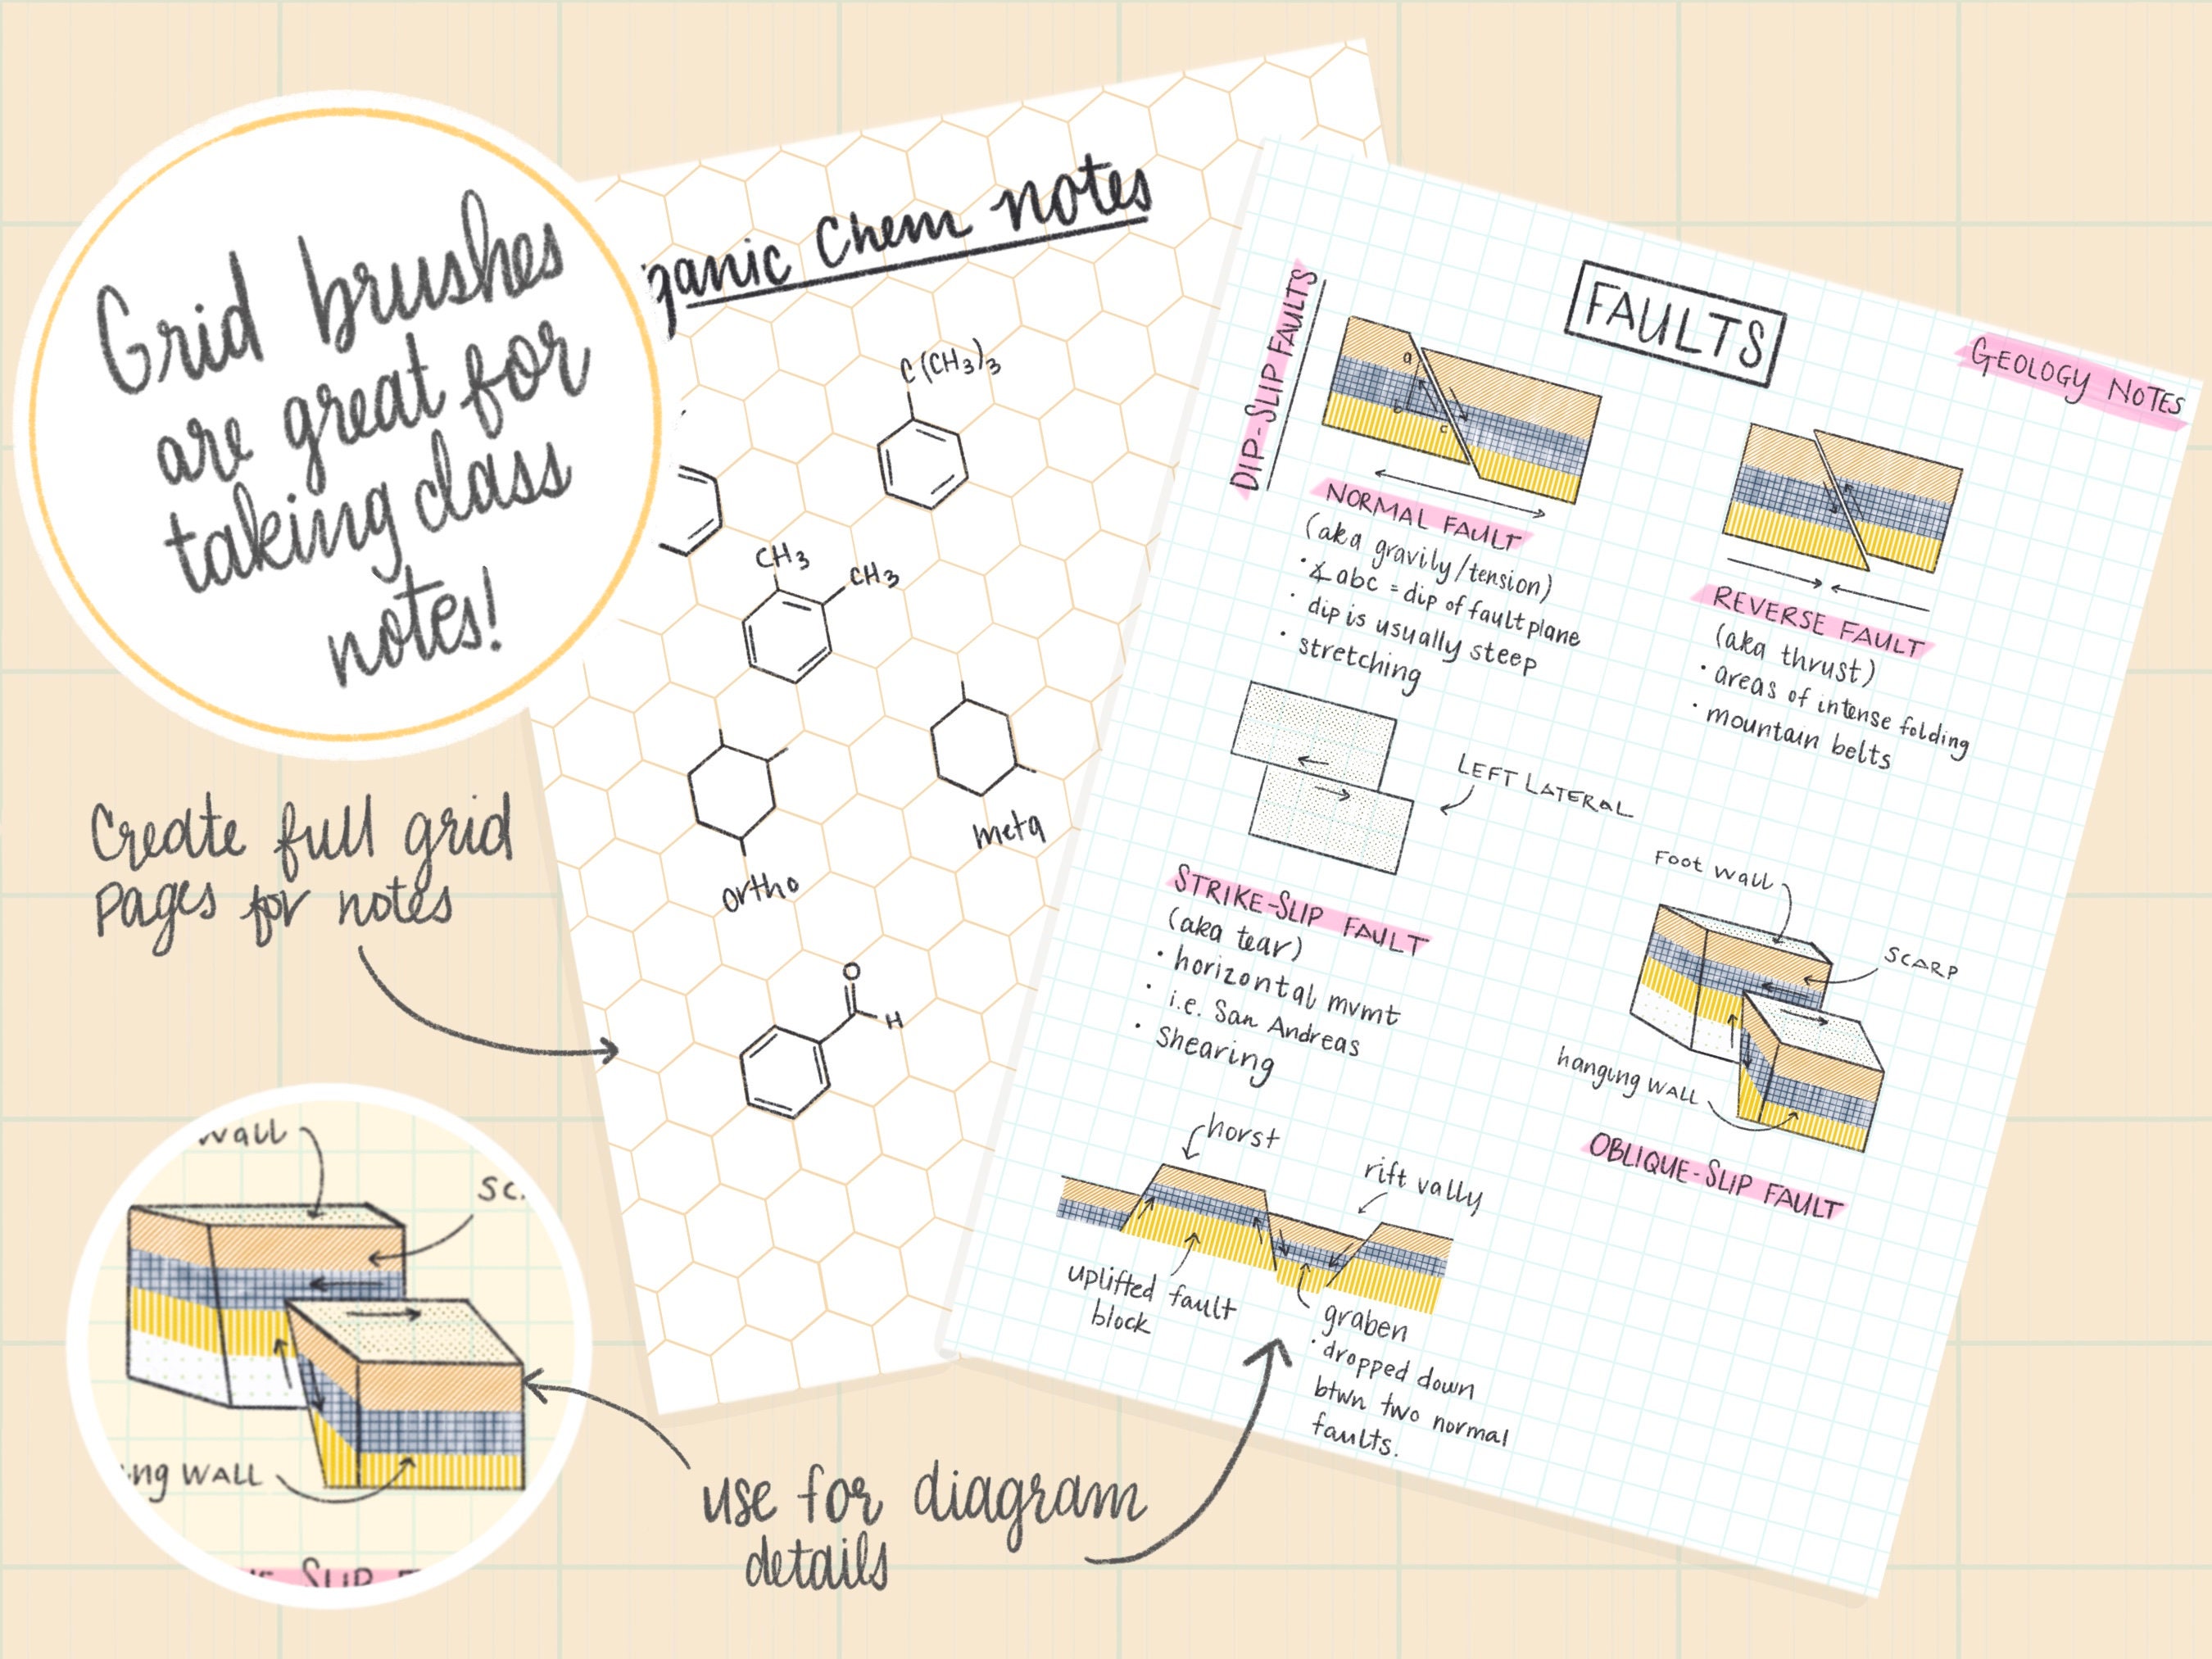 Grid brushes
are great for
taking class
notes!
Create full grid
pages for notes
wall
sc.
ng WALL
SLIP F
use for diagram
details
ganic Chem notes
C(CH3)3
CH3
CH3
ortho
meta
O
H
FAULTS
GEOLOGY NOTES
DIP-SLIP FAULTS
a
b
c
NORMAL FAULT
(aka gravily/tension)
• ∡abc = dip of fault plane
• dip is usually steep
• stretching
REVERSE FAULT
(aka thrust)
• areas of intense folding
• mountain belts
LEFT LATERAL
STRIKE-SLIP FAULT
(aka tear)
• horizontal mvmt
• i.e. San Andreas
• Shearing
Foot wall
SCARP
hanging WALL
OBLIQUE-SLIP FAULT
horst
rift vally
uplifted fault
block
graben
• dropped down
btwn two normal
faults.